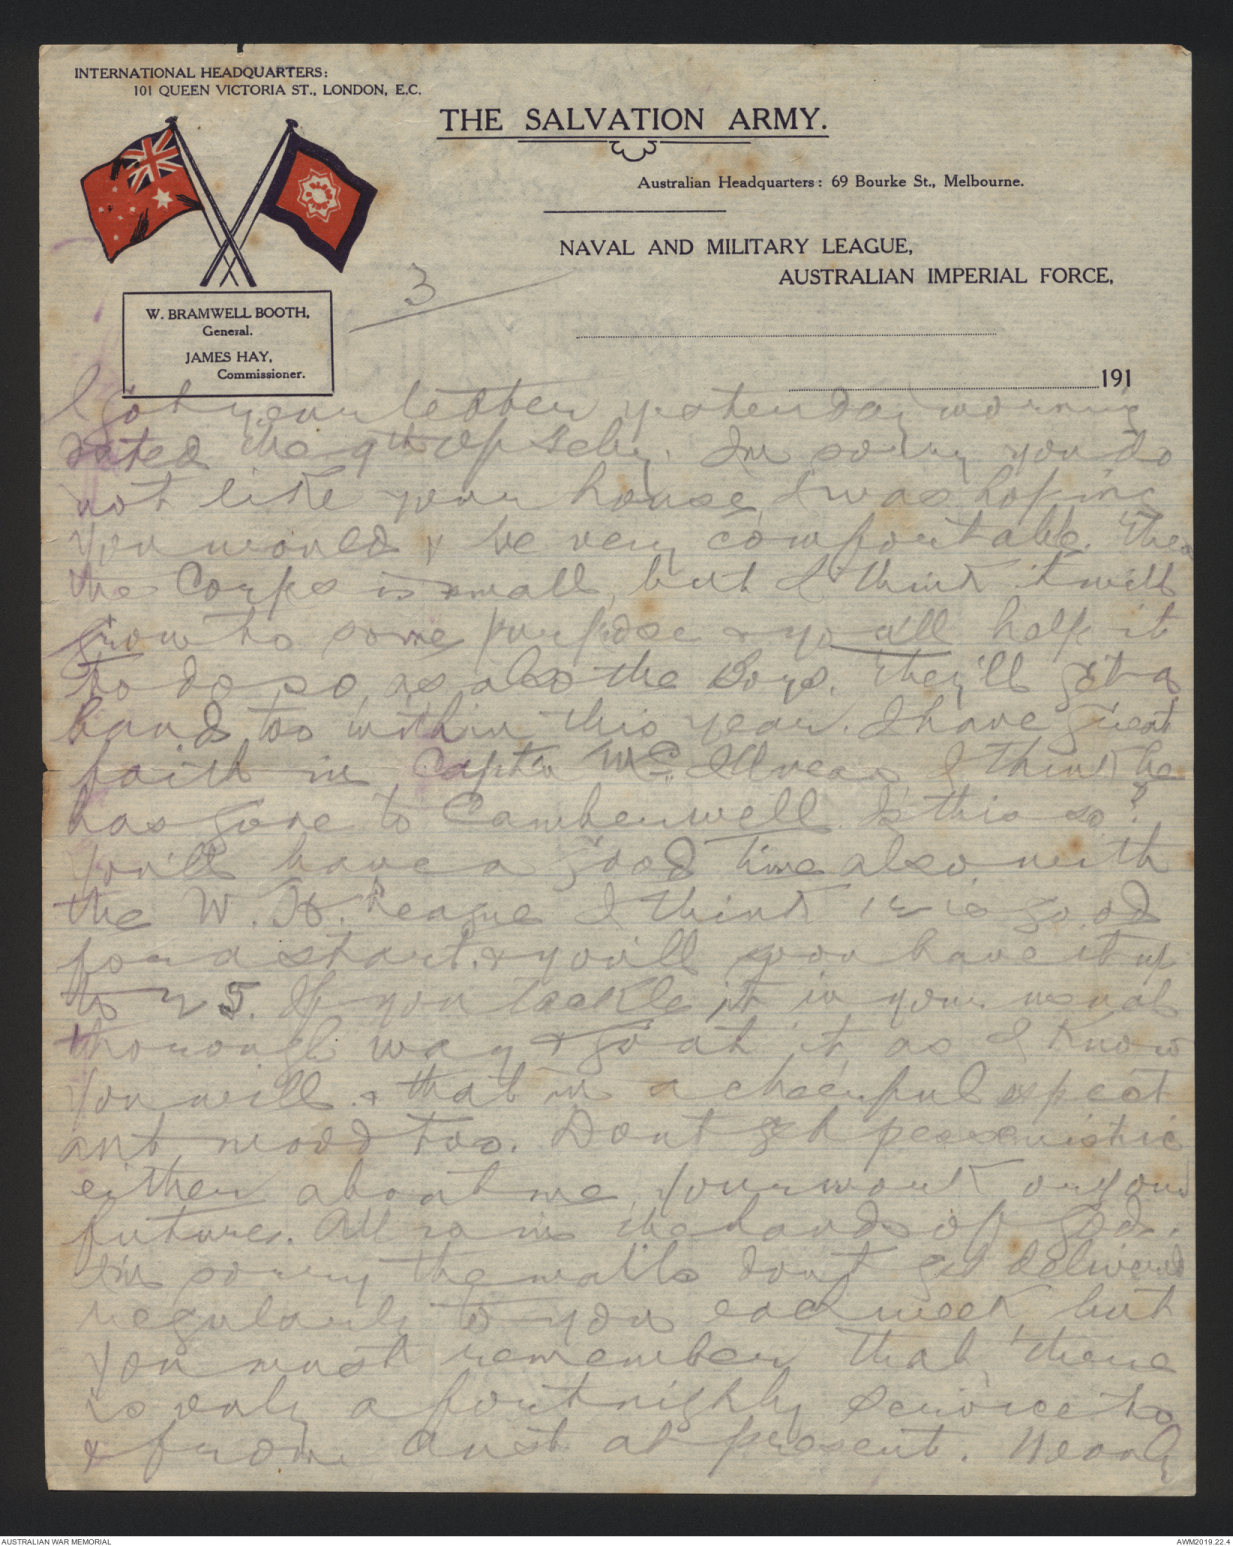 INTERNATIONAL HEADQUARTERS:
101 QUEEN VICTORIA ST., LONDON, E.C.
THE SALVATION ARMY.
Australian Headquarters: 69 Bourke St., Melbourne.
NAVAL AND MILITARY LEAGUE,
AUSTRALIAN IMPERIAL FORCE,
W. BRAMWELL BOOTH,
General.
JAMES HAY,
Commissioner.
3
191
I got your letter yesterday morning
dated the 9th of Feby. Im sorry you do
not like your house, I was hoping
you would & be very comfortable. Then
the Corps is small, but I think it will
grow to some purpose & yo all help it
to do so, as also the Boys. They'll get a
hand too within this year. I have great
faith in Capt. McIlveen I think he
has gone to Camberwell. Is this so?
You'll have a good time also with
the W. H. League I think 12 is good
for a start. & you'll soon have it up
to 25. If you tackle it in your usual
thorough way & go at it, as I know
you will. & that in a cheerful expect
ant mood too. Dont get pessimistic
either about me, your work or your
future. All is in the hands of God.
I'm sorry the mails dont get delivered
regularly to you each week, but
you must remember that there
is only a fortnightly service to
& from Aust at present. Nearly
AUSTRALIAN WAR MEMORIAL
AWM2019.22.4